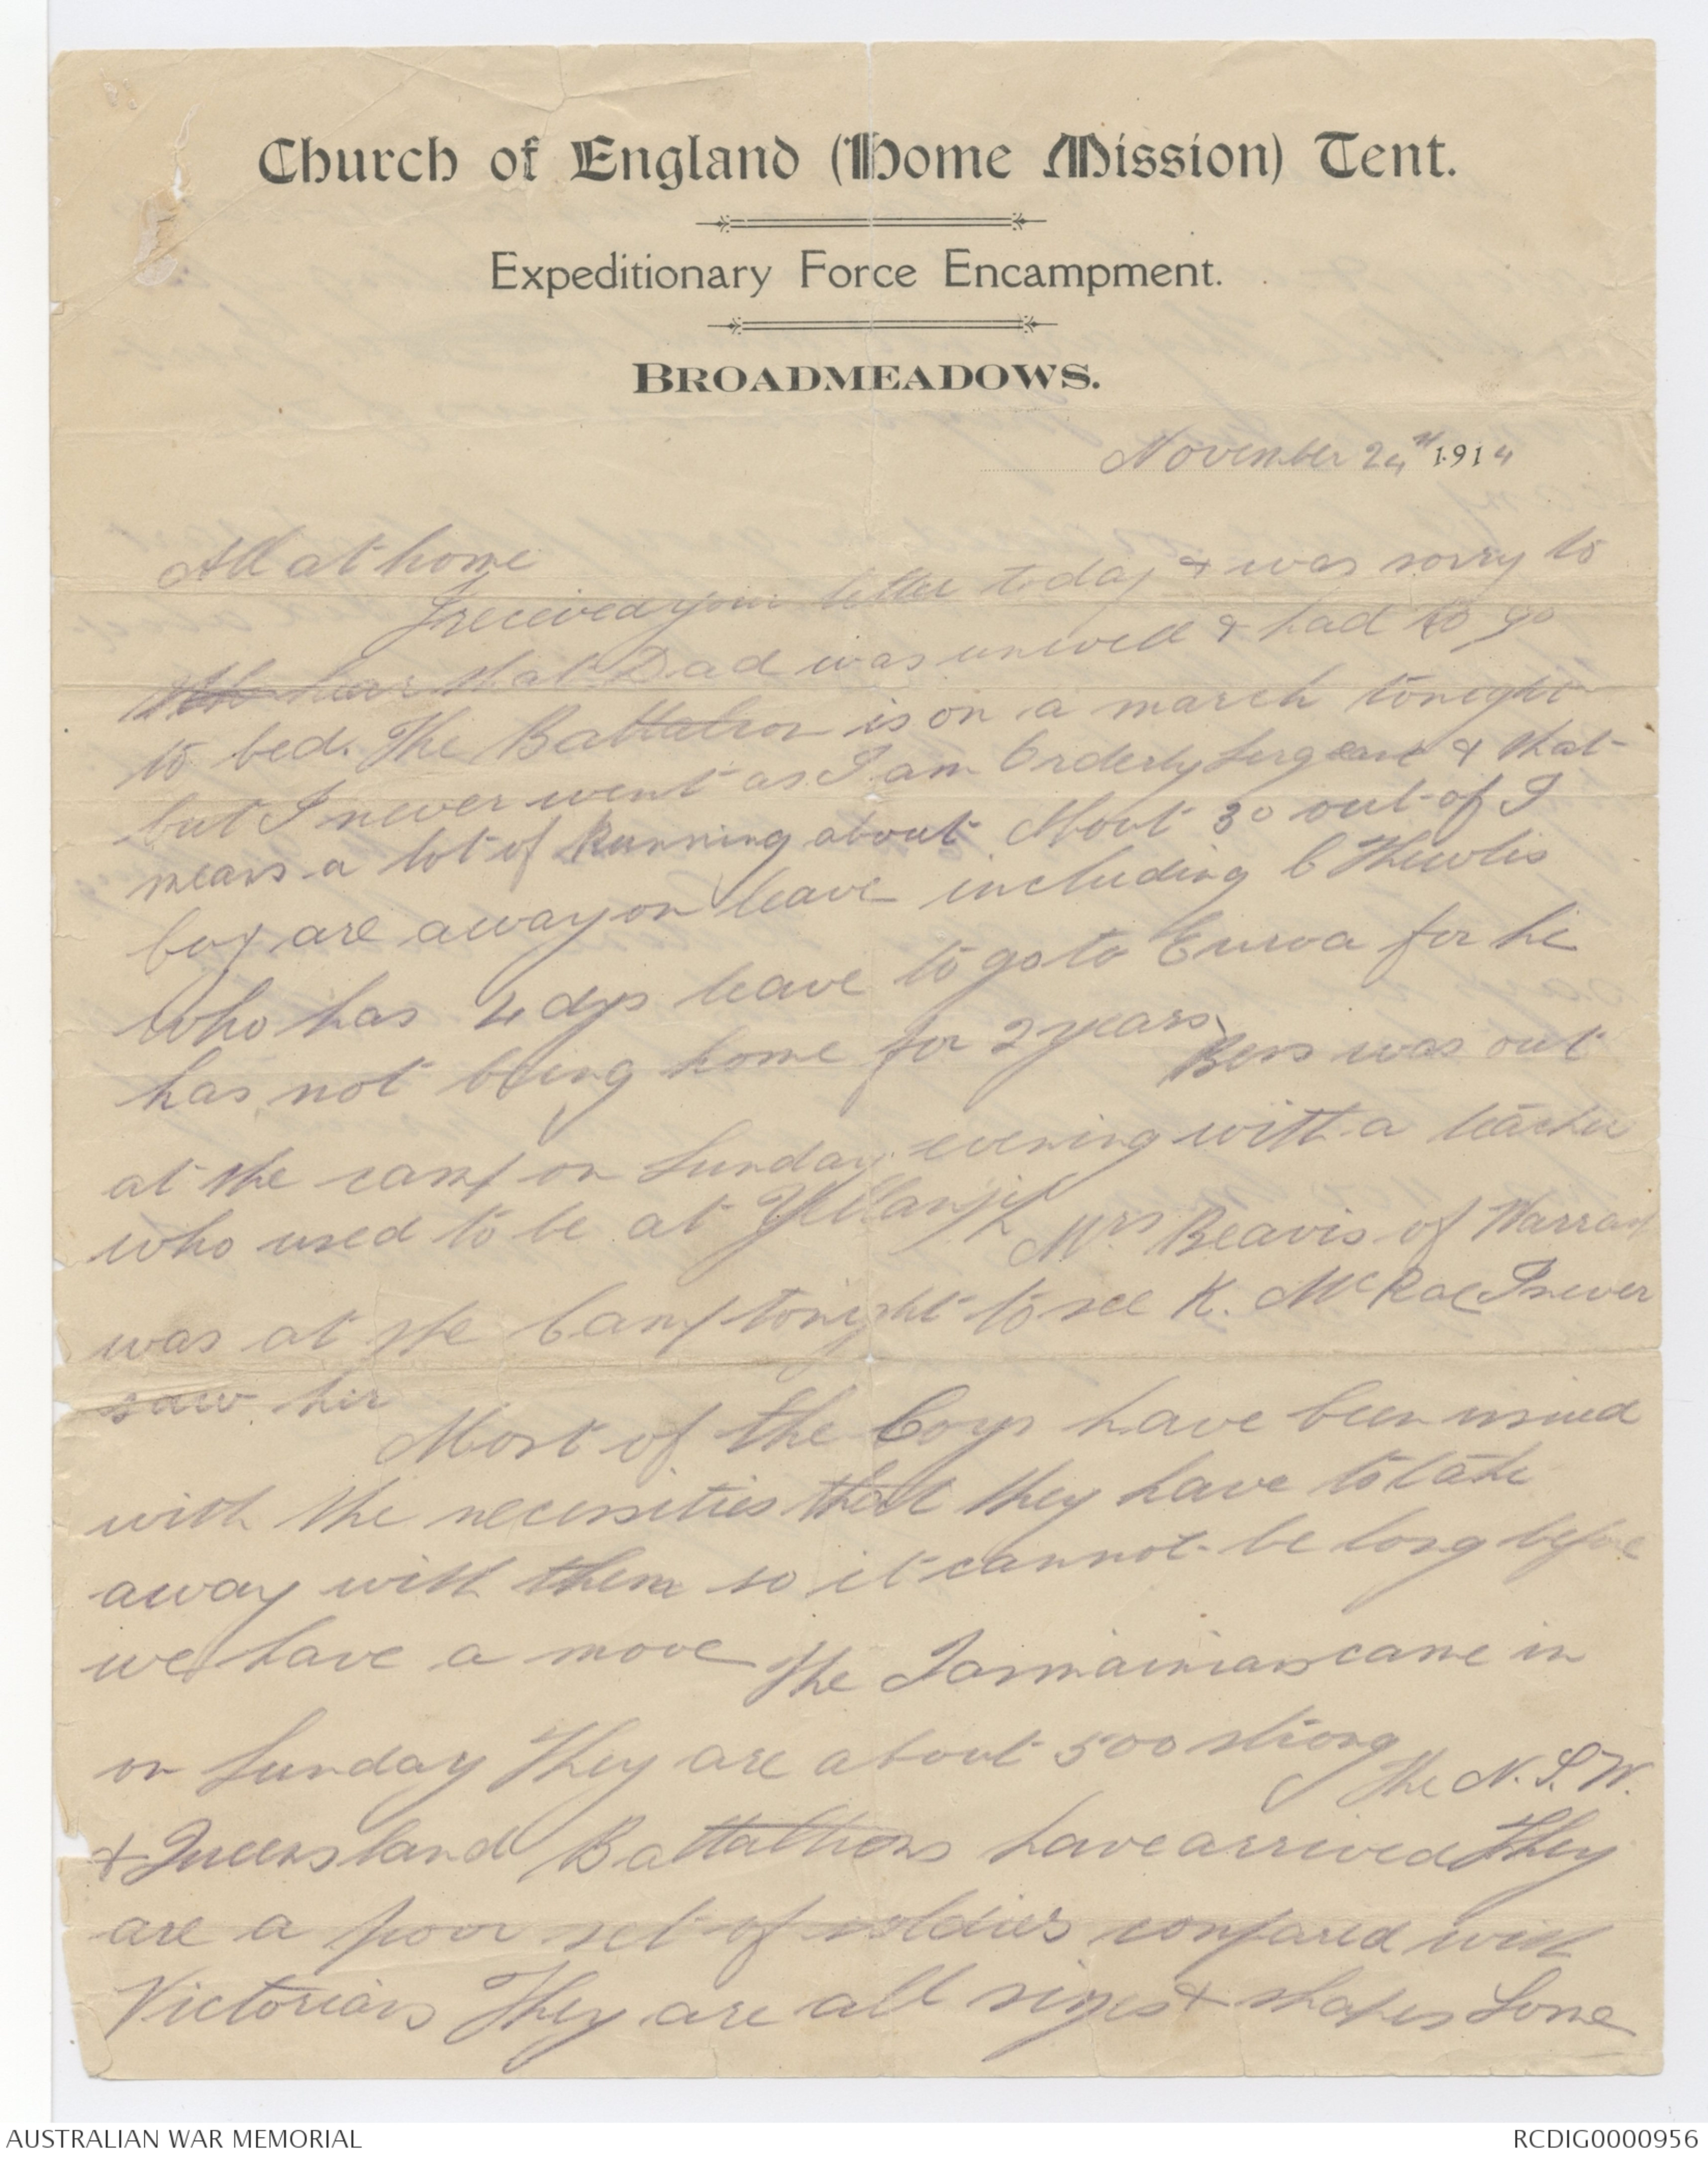 Church of England (Home Mission) Tent.
Expeditionary Force Encampment.
BROADMEADOWS.
November 24th 1914
All at home
I received your letter today & was sorry to
hear that Dad was unwell & had to go
to bed. The Battalion is on a march tonight
but I never went as I am Orderly Sergeant & that
means a lot of Running about About 30 out of I
Coy are away on leave including C Thewlis
who has 4 dys leave to go to Euroa for he
has not being home for 2 years Bess was out
at the camp on Sunday evening with a teacher
who used to be at Yellangip Mrs Beavis of Warrac
was at the Camp tonight to see K. McRae I never
saw her
Most of the Coys have been issued
with the necessities that they have to take
away with them so it cannot be long before
we have a move The Tasmainians came in
on Sunday They are about 500 strong The N.S.W.
& Queensland Battathions have arrived They
are a poor set of soldiers compared with
Victorians They are all sizes & shapes Some
AUSTRALIAN WAR MEMORIAL
RCDIG0000956